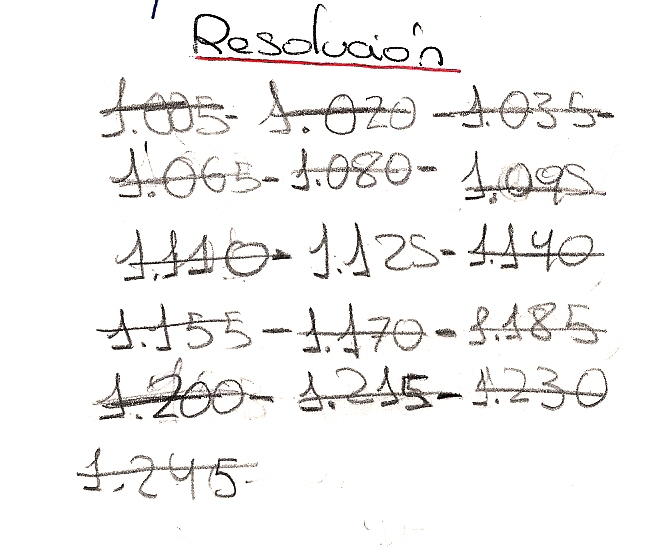 Resolución
1.005- 1.020 -1.035-
1.065- 1.080- 1.095
1.110- 1.125- 1.140
1.155 - 1.170 - 1.185
1.200- 1.215- 1.230
1.245-